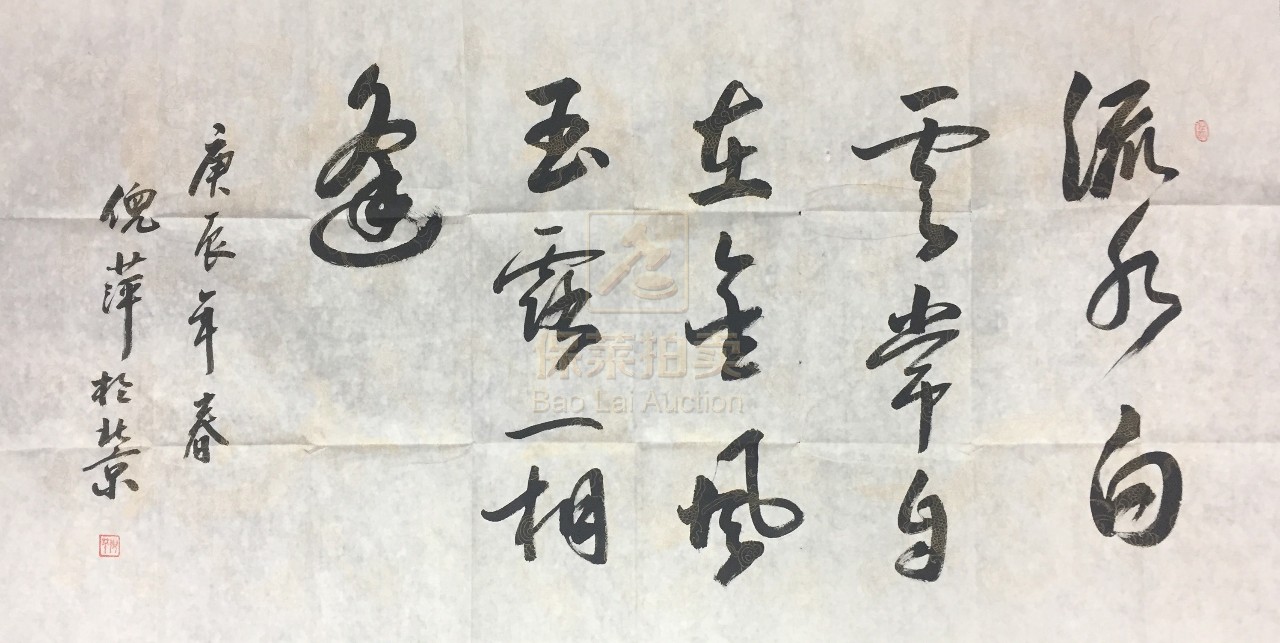 流水白
云常自
在金风
玉露一相
逢
庚辰年春
倪萍於北京
保莱拍卖
Bao Lai Auction